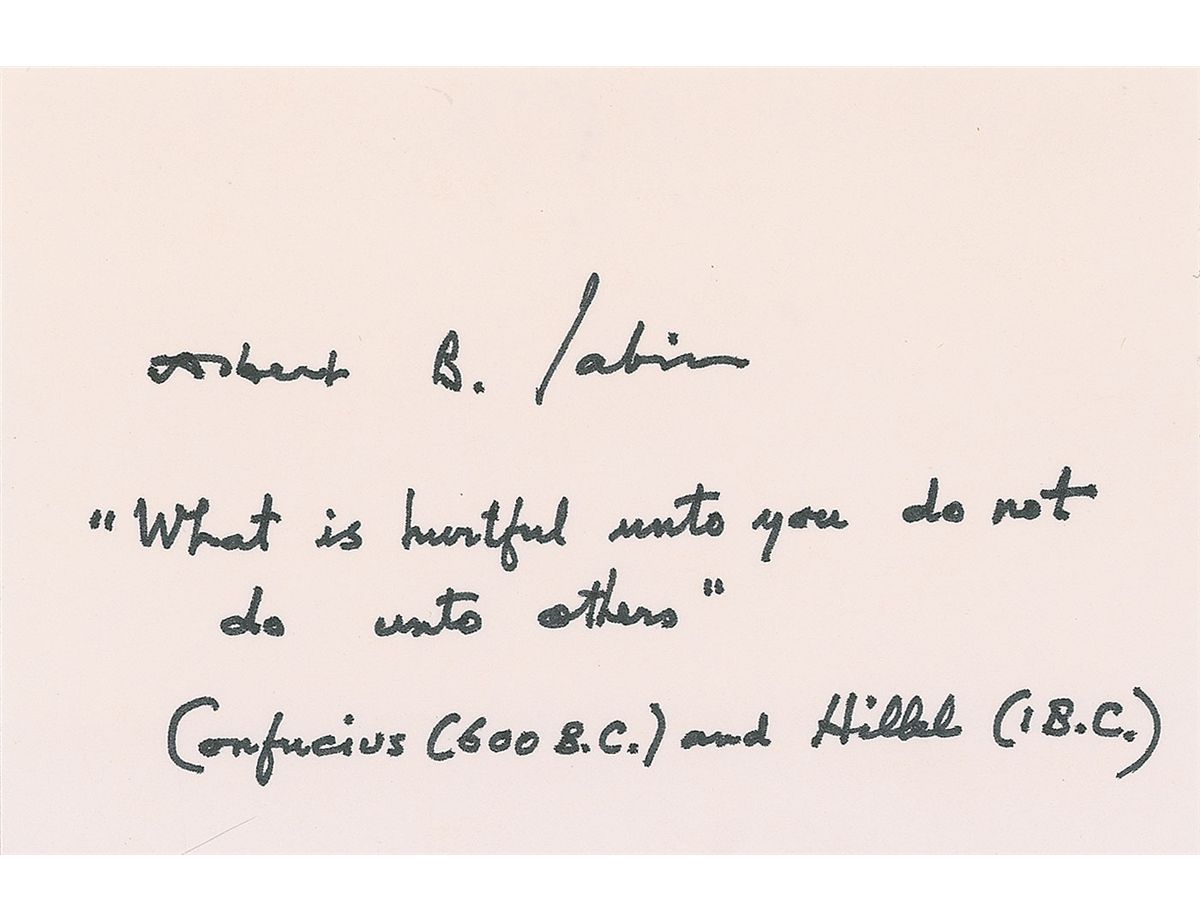 Albert B. Sabin
"What is hurtful unto you do not
do unto others"
Confucius (600 B.C.) and Hillel (1 B.C.)